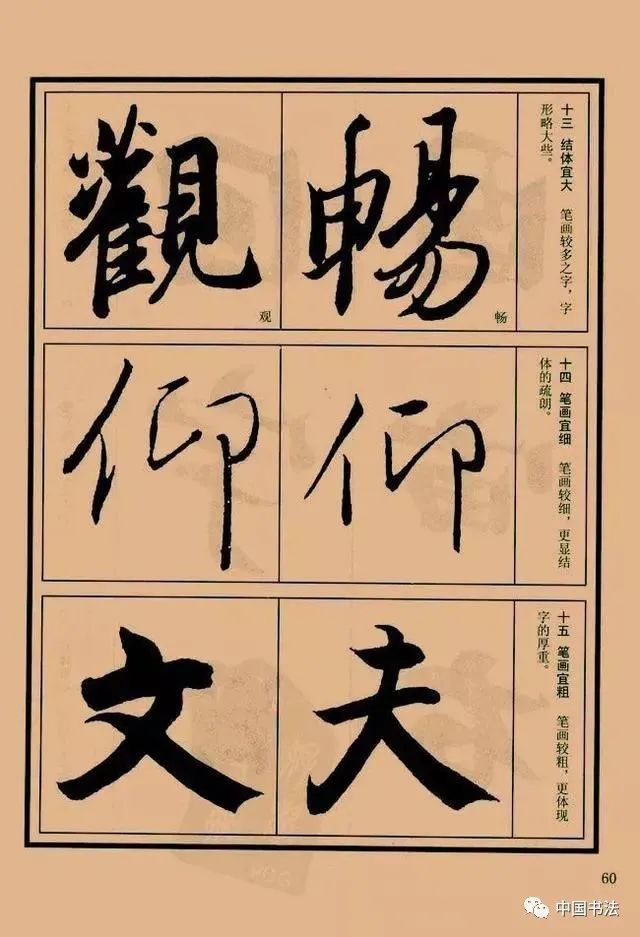 十三 结体宜大 笔画较多之字，字
形略大些。
暢
畅
觀
观
十四 笔画宜细 笔画较细，更显结
体的疏朗。
仰
仰
十五 笔画宜粗 笔画较粗，更体现
字的厚重。
夫
文
60
中国书法